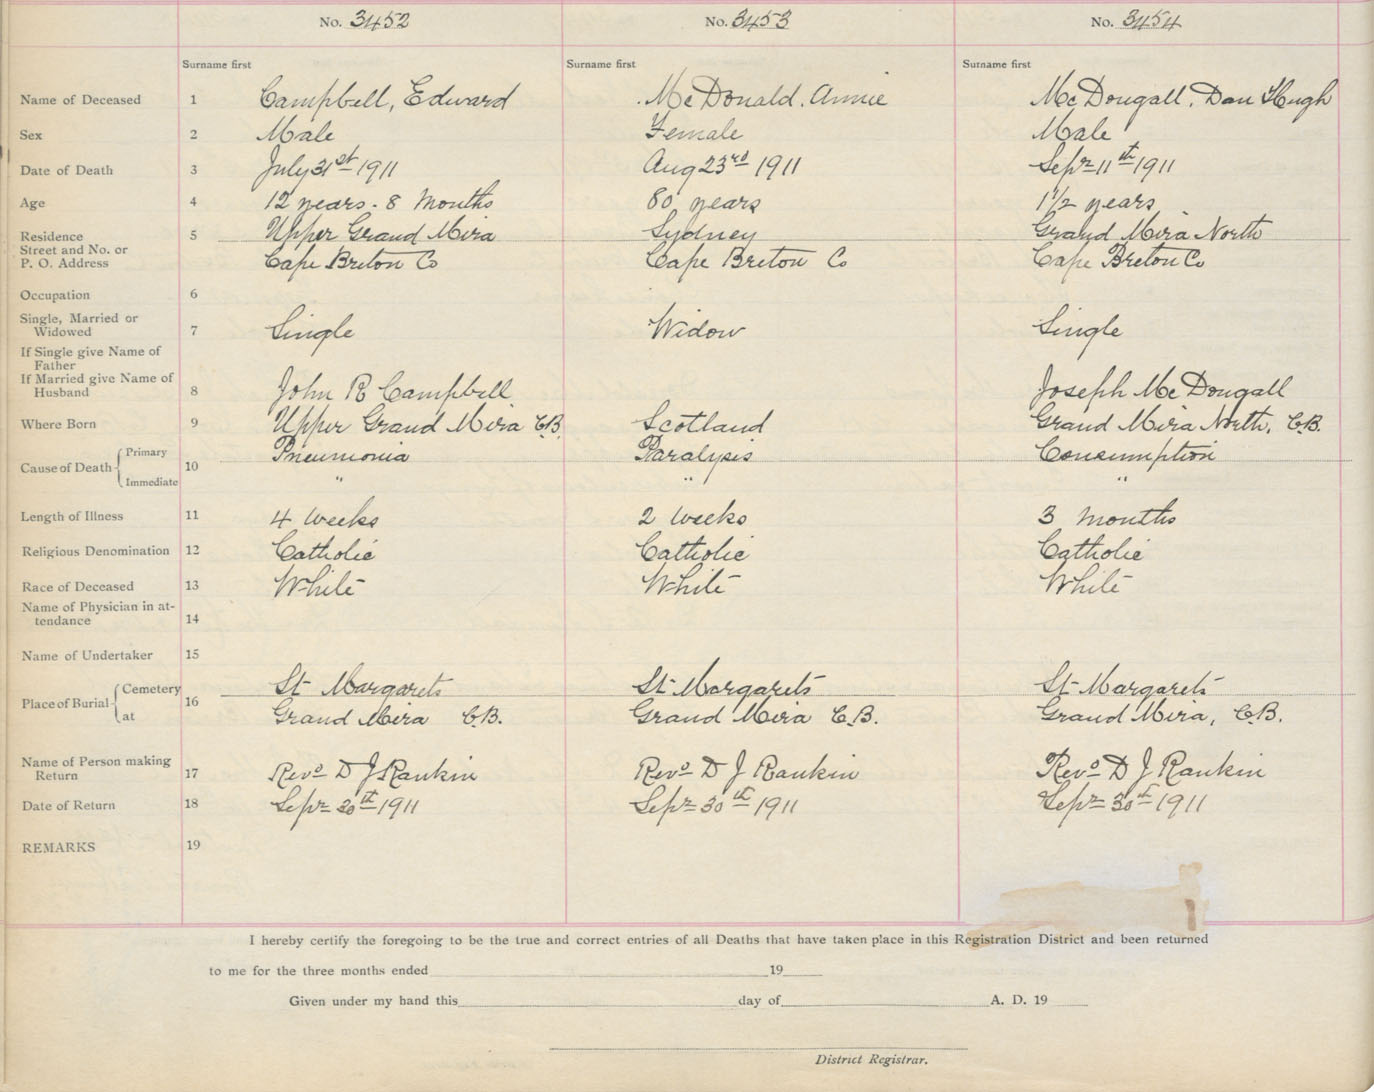 No. 3452 No. 3453 No. 3454
Surname first Surname first Surname first
Name of Deceased 1 Campbell, Edward McDonald. Annie McDougall. Dan Hugh
Sex 2 Male Female Male
Date of Death 3 July 31st 1911 Aug 23rd 1911 Sepr 11th 1911
Age 4 12 years. 8 Months 80 years 1 1/2 years
Residence 5 Upper Grand Mira Sydney Grand Mira North
Street and No. or
P. O. Address Cape Breton Co Cape Breton Co Cape Breton Co
Occupation 6
Single, Married or
Widowed 7 Single Widow Single
If Single give Name of
Father
If Married give Name of
Husband 8 John R Campbell Joseph McDougall
Where Born 9 Upper Grand Mira C.B. Scotland Grand Mira North, C.B.
Cause of Death Primary 10 Pneumonia Paralysis Consumption
Immediate " "
Length of Illness 11 4 weeks 2 weeks 3 months
Religious Denomination 12 Catholic Catholic Catholic
Race of Deceased 13 White White White
Name of Physician in at-
tendance 14
Name of Undertaker 15
Place of Burial Cemetery 16 St Margarets St Margarets St Margarets
at Grand Mira C.B. Grand Mira C.B. Grand Mira, C.B.
Name of Person making
Return 17 Revd D J Rankin Revd D J Rankin Revd D J Rankin
Date of Return 18 Sepr 30th 1911 Sepr 30th 1911 Sepr 30th 1911
REMARKS 19
I hereby certify the foregoing to be the true and correct entries of all Deaths that have taken place in this Registration District and been returned
to me for the three months ended 19
Given under my hand this day of A. D. 19
District Registrar.